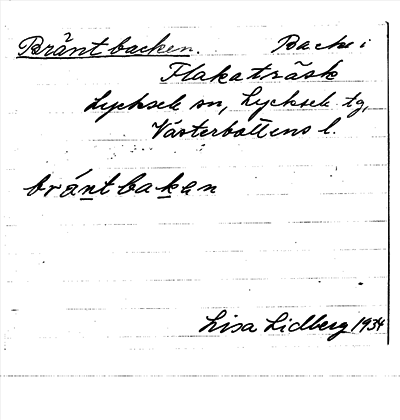 Bräntbacken. Backe i
Flakaträsk
Lycksele sn, Lycksele tg,
Västerbottens l.
bräntbakan
Lisa Lidberg 1934